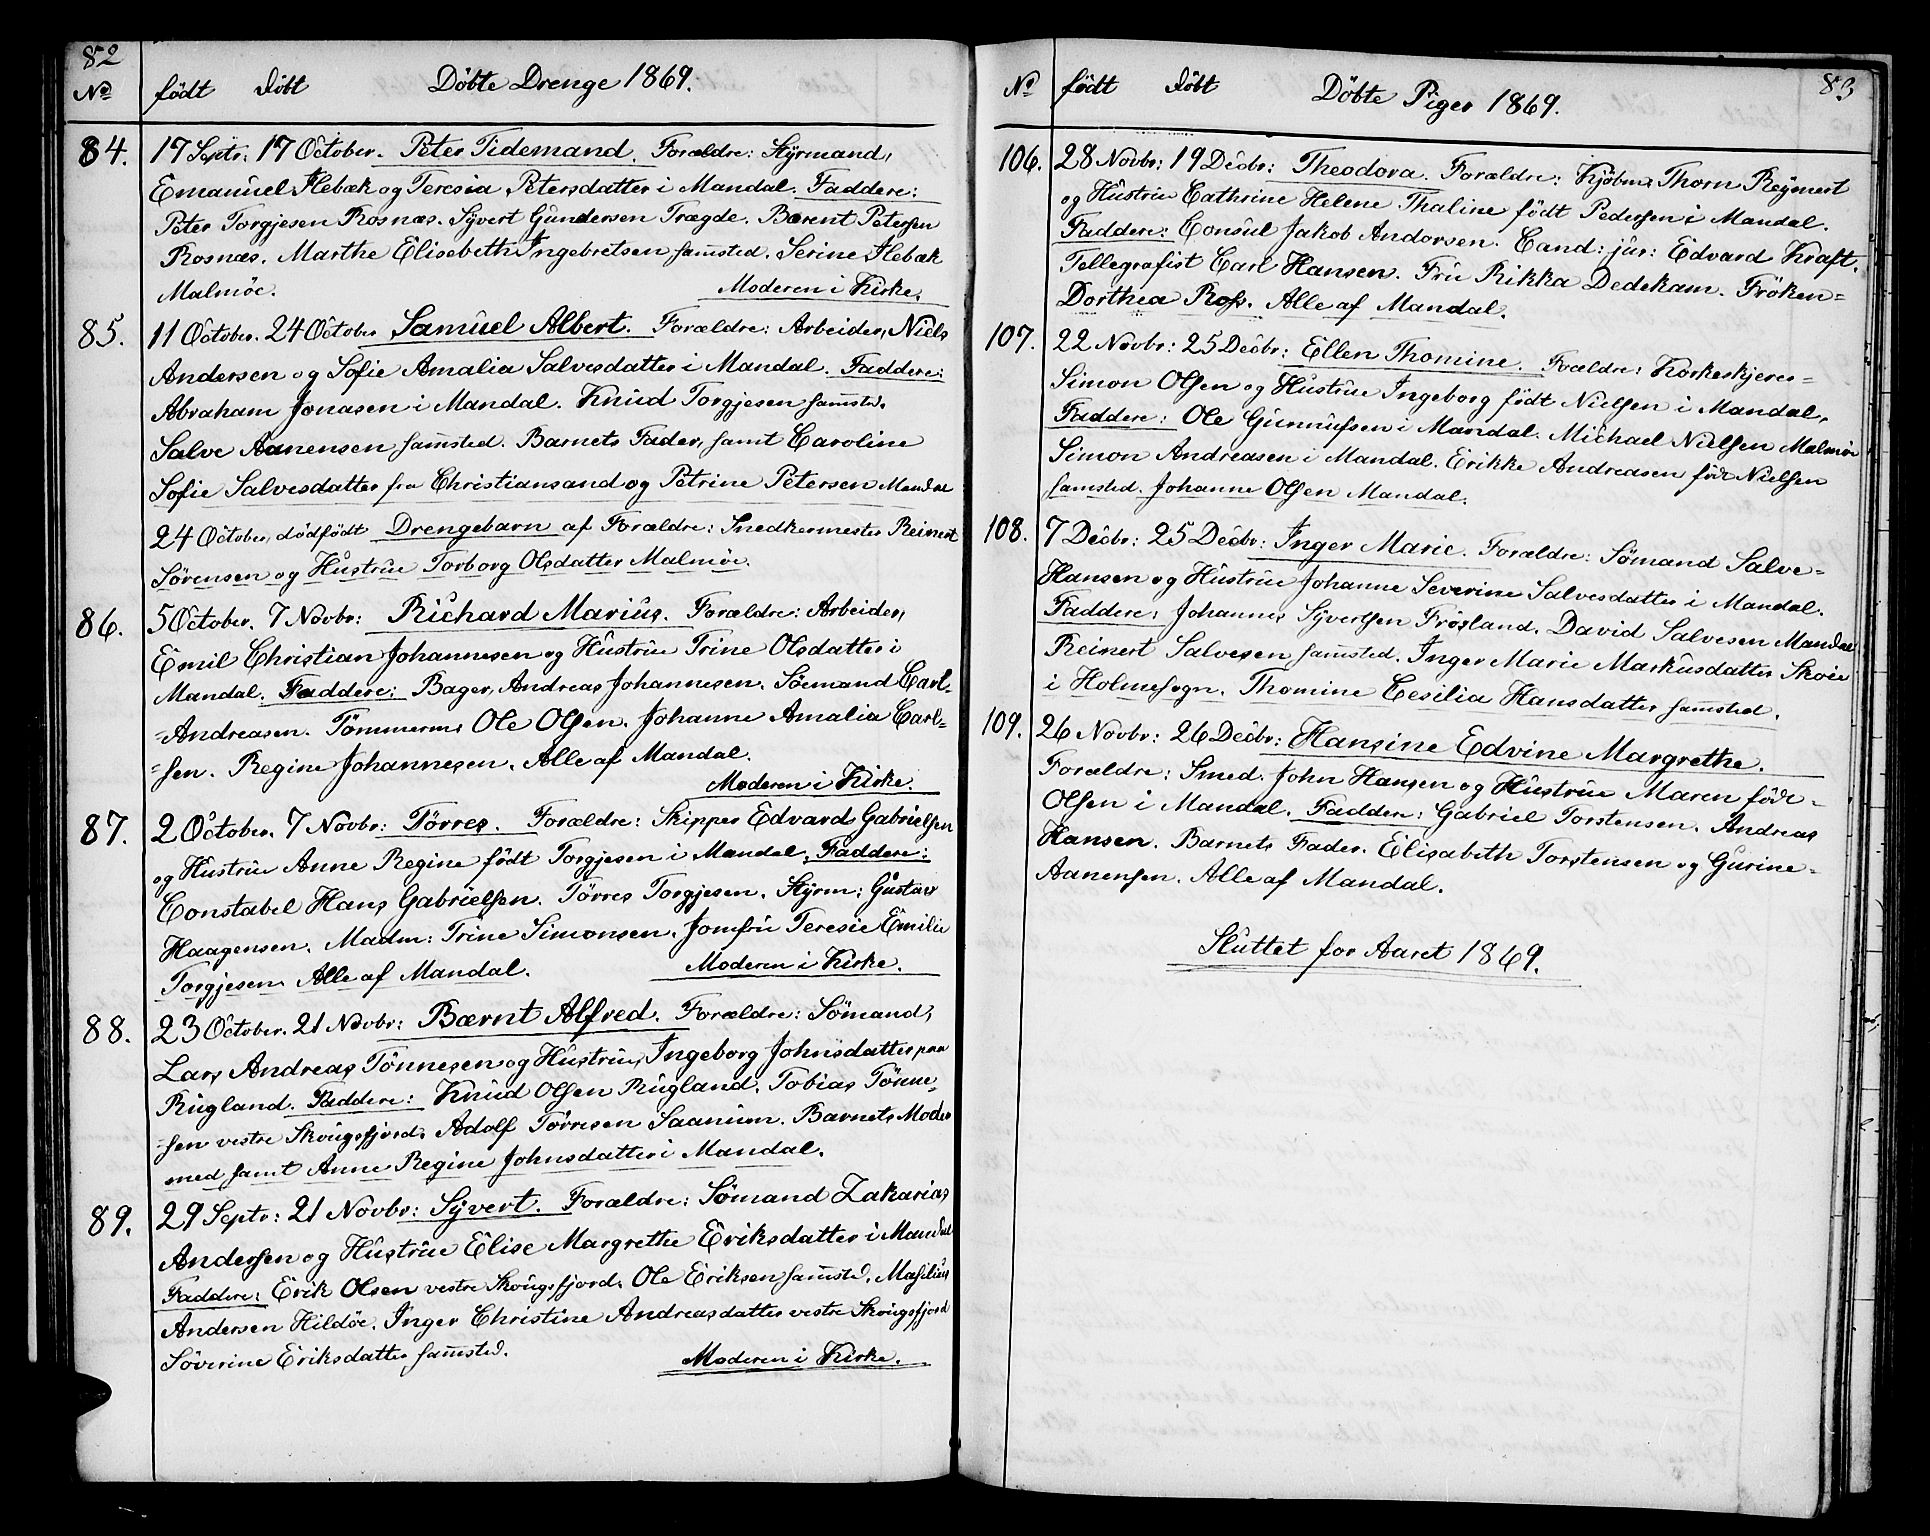 82
No født döbt Döbte Drenge 1869.
84. 17 Septr: 17 October. Peter Tidemand. Forældre: Styrmand,
Emanuel Flebæk og Teresia Petersdatter i Mandal. Faddere:
Peter Torgjesen Rosnæs. Syvert Gundersen Trægde. Bærent Petersen
Rosnæs. Marthe Elisebeth Ingebretsen samsted. Serine Flebæk
Malmöe. Moderen i Kirke.
85. 11 October. 24 October Samuel Albert. Forældre: Arbeider, Niels
Andersen og Sofie Amalia Salvesdatter i Mandal. Faddere:
Abraham Jonasen i Mandal. Knud Torgjesen samsted.
Salve Aanensen samsted. Barnets Fader, samt Caroline
Sofie Salvesdatter fra Christiansand og Petrine Petersen Mandal
24 October, dödfödt Drengebarn af Forældre: Snedkermester Reinert
Sörensen og Hustrue Torborg Olsdatter Malmöe.
86. 5 October. 7 Novbr: Richard Marius. Forældre: Arbeider,
Emil Christian Johannesen og Hustrue Trine Olsdatter i
Mandal. Faddere: Bager, Andreas Johannesen. Söemand Carl-
=Andreasen. Tömmerm. Ole Olsen. Johanne Amalia Carl=
=sen. Regine Johannesen. Alle af Mandal.
Moderen i Kirke.
87. 2 October. 7 Novbr: Törres. Forældre: Skipper Edvard Gabrielsen
og Hustrue Anne Regine födt Torgjesen i Mandal. Faddere:
Constabel Hans Gabrielsen. Törres Torgjesen. Styrm: Gustav
Haagensen. Madm: Trine Simonsen. Jomfru Teresie Emilie
Torgjesen. Alle af Mandal. Moderen i Kirke.
88. 23 October. 21 Novbr: Bærnt Alfred. Forældre: Sömand,
Lars Andreas Tönnesen og Hustrue, Ingeborg Johnsdatter paa
Rugland. Faddere: Knud Olsen Rugland. Tobias Tönne=
=sen vestre Skougsfjord. Adolf Törresen Saanum. Barnets Moder
med samt Anne Regine Johnsdatter i Mandal.
89. 29 Septr: 21 Novbr: Syvert. Forældre: Sömand Zakarias
Andersen og Hustrue Elise Margrethe Eriksdatter i Mandal
Faddere: Erik Olsen vestre Skougsfjord. Ole Eriksen samsted. Masilius
Andersen Hildöe. Inger Christine Andreasdatter vestre Skougsfjord
Söverine Eriksdatter samsted. Moderen i Kirke.
83
No födt döbt Döbte Piger 1869.
106. 28 Novbr: 19 Decbr: Theodora. Forældre: Kjöbm. Thorn Reymert
og Hustrue Cathrine Helene Thaline födt Pedersen i Mandal.
Faddere: Consul Jakob Andorsen. Cand: jur: Edvard Kraft.
Tellegrafist Carl Hansen. Fru Rikka Dedekam. Fröken=
Dorthea Ross. Alle af Mandal.
107. 22 Novbr: 25 Decbr: Ellen Thomine. Forældre: Korkeskjerer=
Simon Olsen og Hustrue Ingeborg födt Nielsen i Mandal,
Faddere: Ole Gunnufsen i Mandal. Michael Nielsen Malmöe
Simon Andreasen i Mandal. Erikke Andreasen föd Nielsen
samsted. Johanne Olsen Mandal.
108. 7 Decbr: 25 Decbr: Inger Marie. Forældre: Sömand Salve=
Hansen og Hustrue Johanne Severine Salvesdatter i Mandal.
Faddere, Johannes Syvertsen Frösland. David Salvesen Mandal
Reinert Salvesen samsted. Inger Marie Markusdatter Skoie
i Holmesogn. Thomine Cesilia Hansdatter samsted.
109. 26 Novbr: 26 Decbr: Hansine Edvine Margrethe.
Forældre: Smed. John Hansen og Hustrue Maren föd=
Olsen i Mandal. Faddere: Gabriel Torstensen. Andreas
Hansen. Barnets Fader. Elisabeth Torstensen og Gurine=
Aanensen. Alle af Mandal.
Sluttet for Aaret 1869.